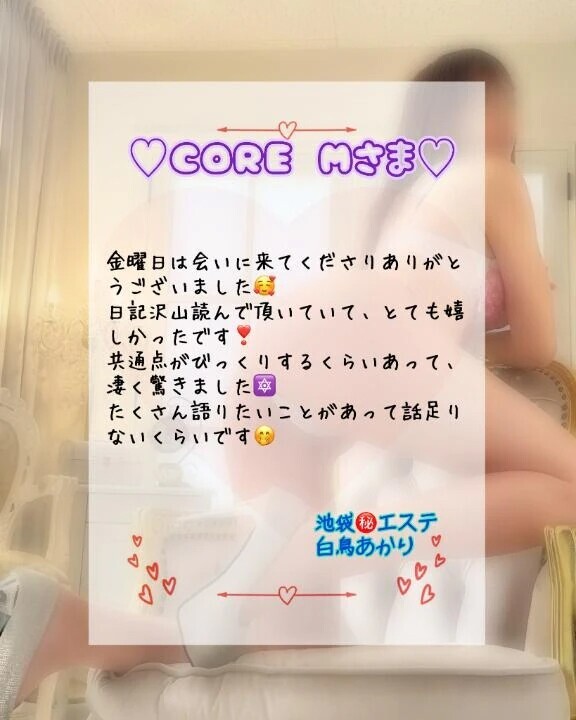 ♡CORE Mさま♡
金曜日は会いに来てくださりありがと
うございました🥰
日記沢山読んで頂いていて、とても嬉
しかったです❣️
共通点がびっくりするくらいあって、
凄く驚きました🔯
たくさん語りたいことがあって話足り
ないくらいです🤭
池袋㊙️エステ
白鳥あかり